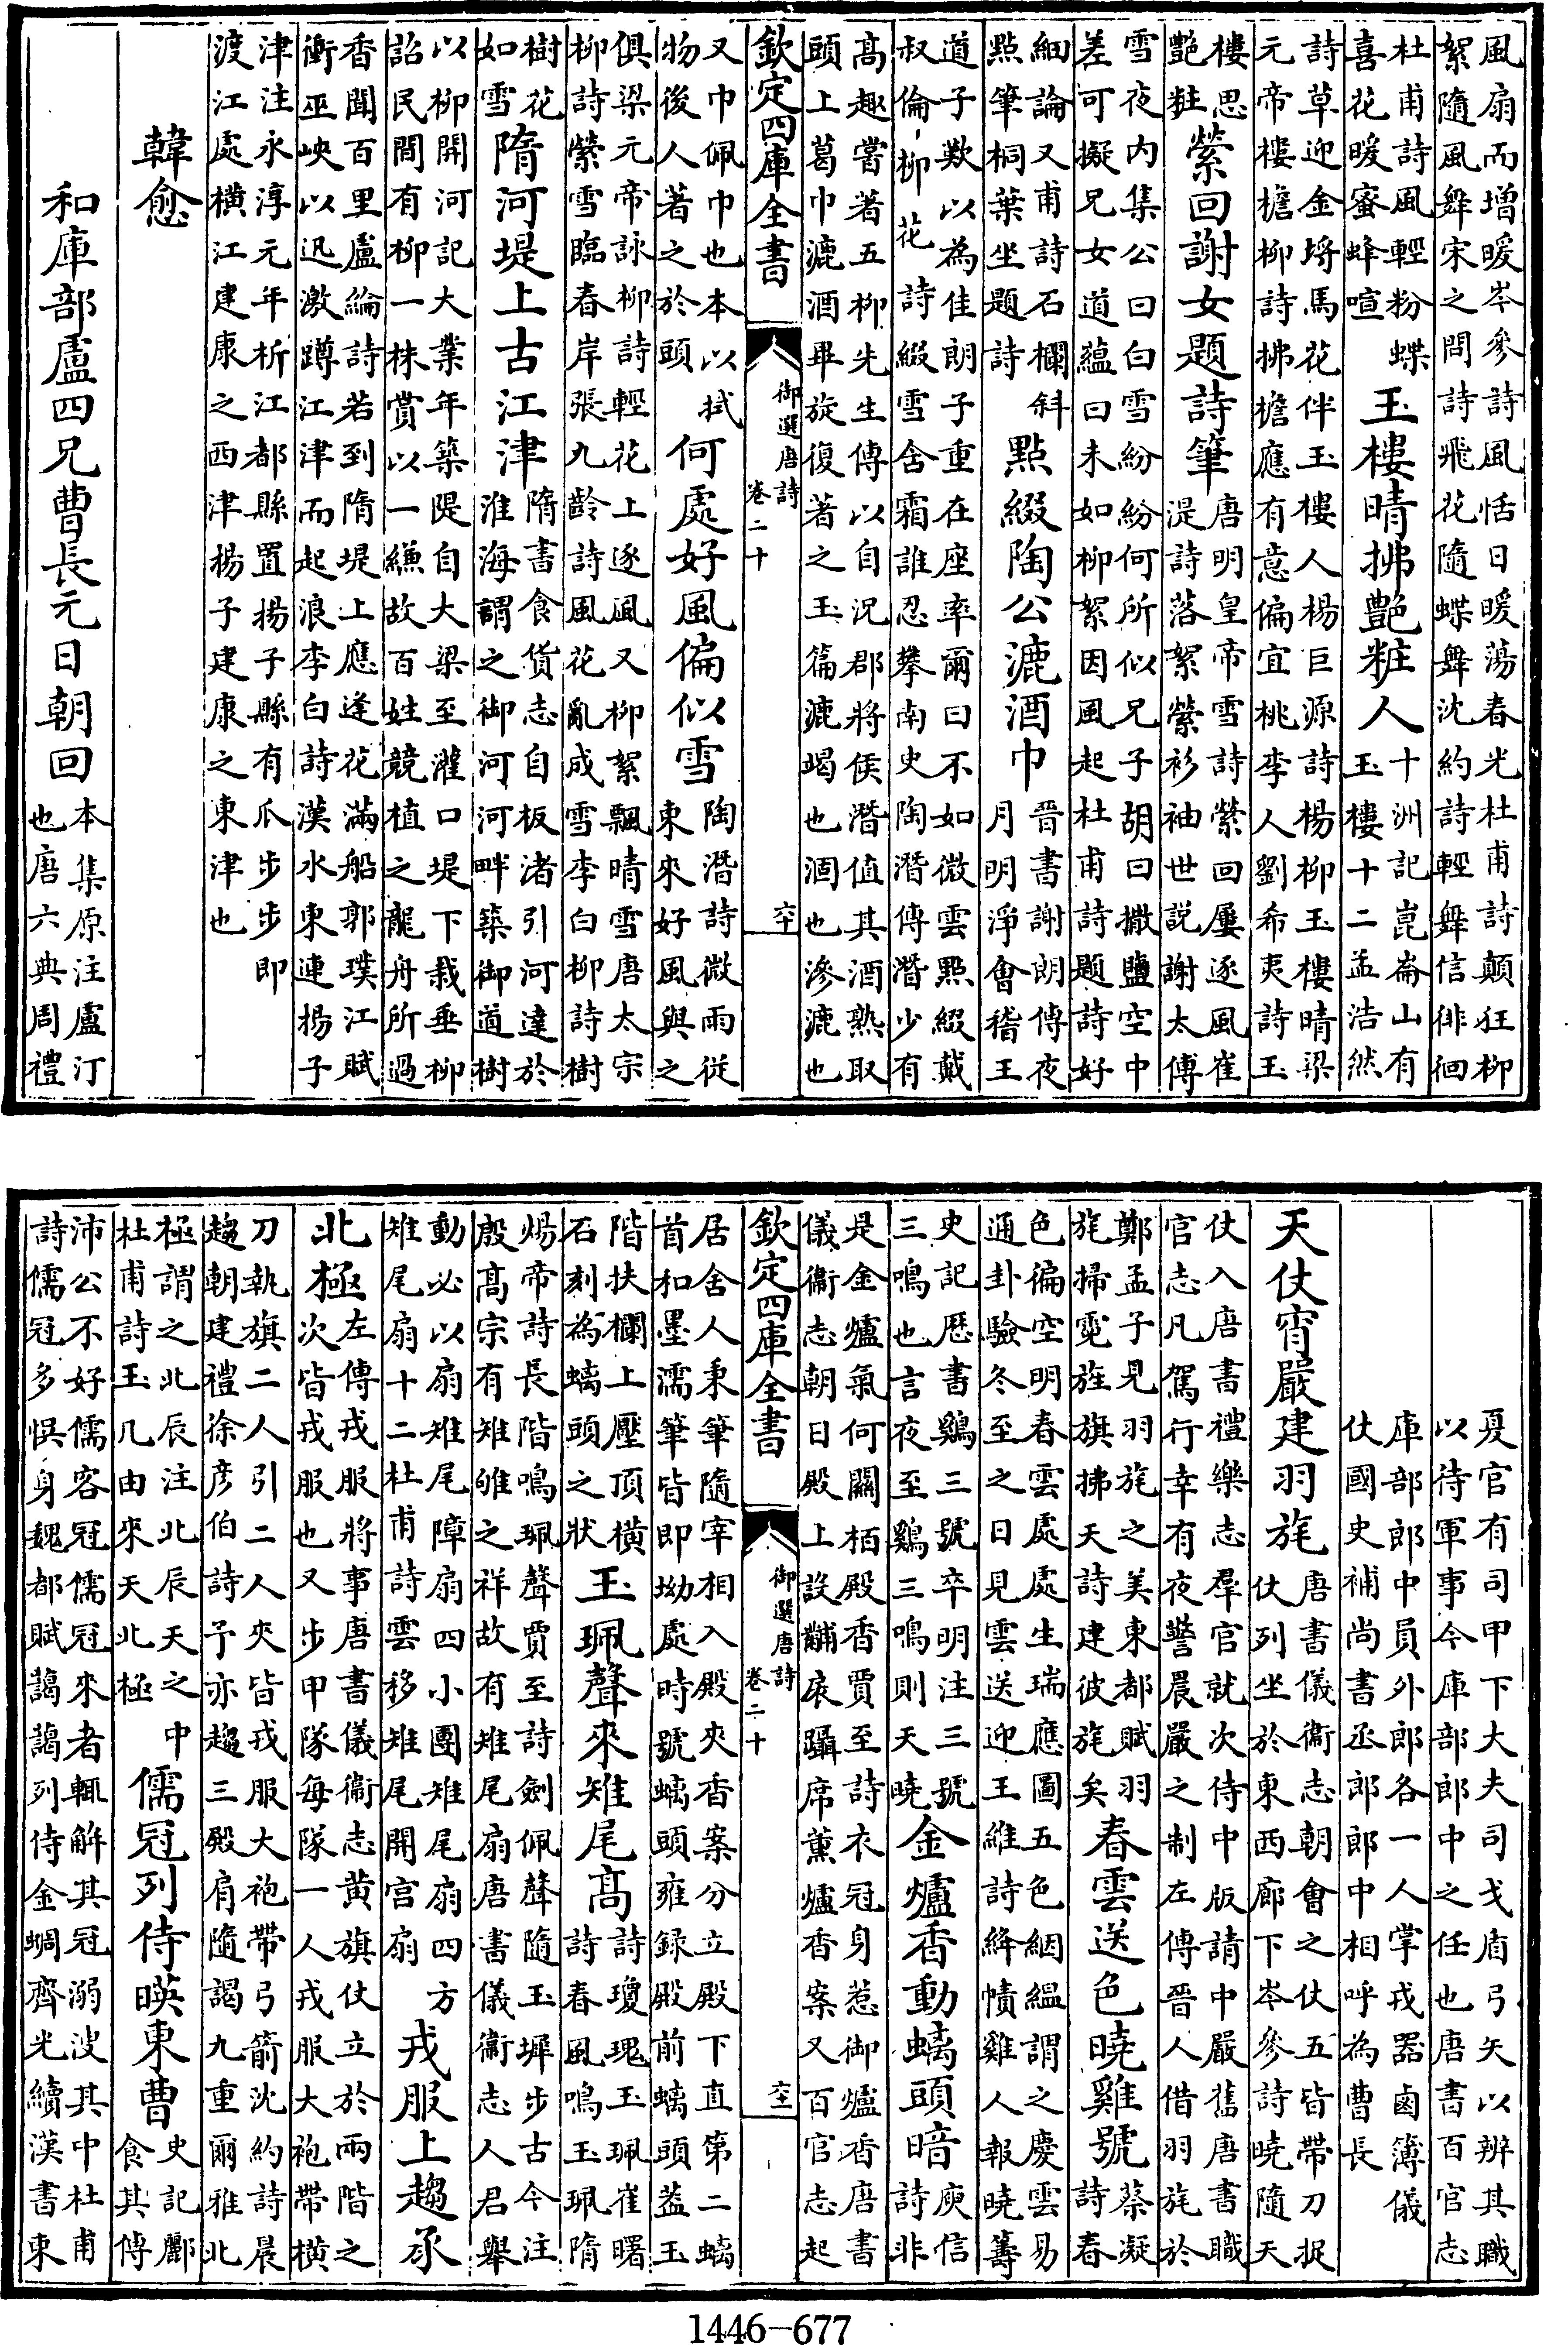 風扇而增暖岑參詩風恬日暖蕩春光杜甫詩顛狂柳
絮隨風舞宋之問詩飛花隨蝶舞沈約詩輕舞信徘徊
杜甫詩風輕粉蝶
喜花暖蜜蜂喧
玉樓晴拂艷粧人
十洲記崑崙山有
玉樓十二孟浩然
詩草迎金埒馬花伴玉樓人楊巨源詩楊柳玉樓晴梁
元帝樓檐柳詩拂檐應有意偏宜桃李人劉希夷詩玉
樓思
艷粧
縈回謝女題詩筆
唐明皇帝雪詩縈回屢逐風崔
湜詩落絮縈衫袖世説謝太傅
雪夜内集公曰白雪紛紛何所似兄子胡曰撒鹽空中
差可擬兄女道蘊曰未如柳絮因風起杜甫詩題詩好
細論又甫詩石欄斜
點筆桐葉坐題詩
點綴陶公漉酒巾
晉書謝朗傳夜
月明淨會稽王
道子歎以為佳朗子重在座率爾曰不如微雲點綴戴
叔倫柳花詩綴雪含霜誰忍攀南史陶潛傳潛少有
高趣嘗著五柳先生傳以自況郡將侯潛值其酒熟取
頭上葛巾漉酒畢旋復著之玉篇漉竭也涸也滲漉也
欽定四庫全書
御選唐詩
卷二十
六十
又巾佩巾也本以拭
物後人著之於頭
何處好風偏似雪
陶潛詩微雨從
東來好風與之
俱梁元帝詠柳詩輕花上逐風又柳絮飄晴雪唐太宗
柳詩縈雪臨春岸張九齡詩風花亂成雪李白柳詩樹
樹花
如雪
隋河堤上古江津
隋書食貨志自板渚引河達於
淮海謂之御河河畔築御道樹
以柳開河記大業年築隄自大梁至灌口堤下栽垂柳
詔民間有柳一株賞以一縑故百姓競植之龍舟所過
香聞百里盧綸詩若到隋堤上應逢花滿船郭璞江賦
衝巫峽以迅激蹲江津而起浪李白詩漢水東連揚子
津注永淳元年析江都縣置揚子縣有瓜步步即
渡江處橫江建康之西津楊子建康之東津也
韓愈
和庫部盧四兄曹長元日朝回
本集原注盧汀
也唐六典周禮
夏官有司甲下大夫司戈盾弓矢以辨其職
以待軍事今庫部郎中之任也唐書百官志
庫部郎中員外郎各一人掌戎器鹵簿儀
仗國史補尚書丞郎郎中相呼為曹長
天仗宵嚴建羽旄
唐書儀衞志朝會之仗五皆帶刀捉
仗列坐於東西廊下岑參詩曉隨天
仗入唐書禮樂志羣官就次侍中版請中嚴舊唐書職
官志凡駕行幸有夜警晨嚴之制左傳晉人借羽旄於
鄭孟子見羽旄之美東都賦羽
旄掃霓旌旗拂天詩建彼旄矣
春雲送色曉雞號
蔡凝
詩春
色徧空明春雲處處生瑞應圖五色絪縕謂之慶雲易
通卦驗冬至之日見雲送迎王維詩絳幘雞人報曉籌
史記厯書鷄三號卒明注三號
三鳴也言夜至鷄三鳴則天曉
金爐香動螭頭暗
庾信
詩非
是金爐氣何關栢殿香賈至詩衣冠身惹御爐香唐書
儀衞志朝日殿上設黼扆躡席薰爐香案又百官志起
欽定四庫全書
御選唐詩
卷二十
六十一
居舍人秉筆隨宰相入殿夾香案分立殿下直第二螭
首和墨濡筆皆即坳處時號螭頭雍録殿前螭頭蓋玉
階扶欄上壓頂横
石刻為螭頭之狀
玉珮聲來雉尾高
詩瓊瑰玉珮崔曙
詩春風鳴玉珮隋
煬帝詩長階鳴珮聲賈至詩劍佩聲隨玉墀步古今注
殷高宗有雉雊之祥故有雉尾扇唐書儀衞志人君舉
動必以扇雉尾障扇四小團雉尾扇四方
雉尾扇十二杜甫詩雲移雉尾開宫扇
戎服上趨承
北極
左傳戎服將事唐書儀衞志黄旗仗立於兩階之
次皆戎服也又步甲隊每隊一人戎服大袍帶橫
刀執旗二人引二人夾皆戎服大袍帶弓箭沈約詩晨
趨朝建禮徐彦伯詩予亦趨三殿肩隨謁九重爾雅北
極謂之北辰注北辰天之中
杜甫詩玉几由來天北極
儒冠列侍暎東曹
史記酈
食其傳
沛公不好儒客冠儒冠來者輒解其冠溺溲其中杜甫
詩儒冠多悞身魏都賦藹藹列侍金蜩齊光續漢書東
1446-677